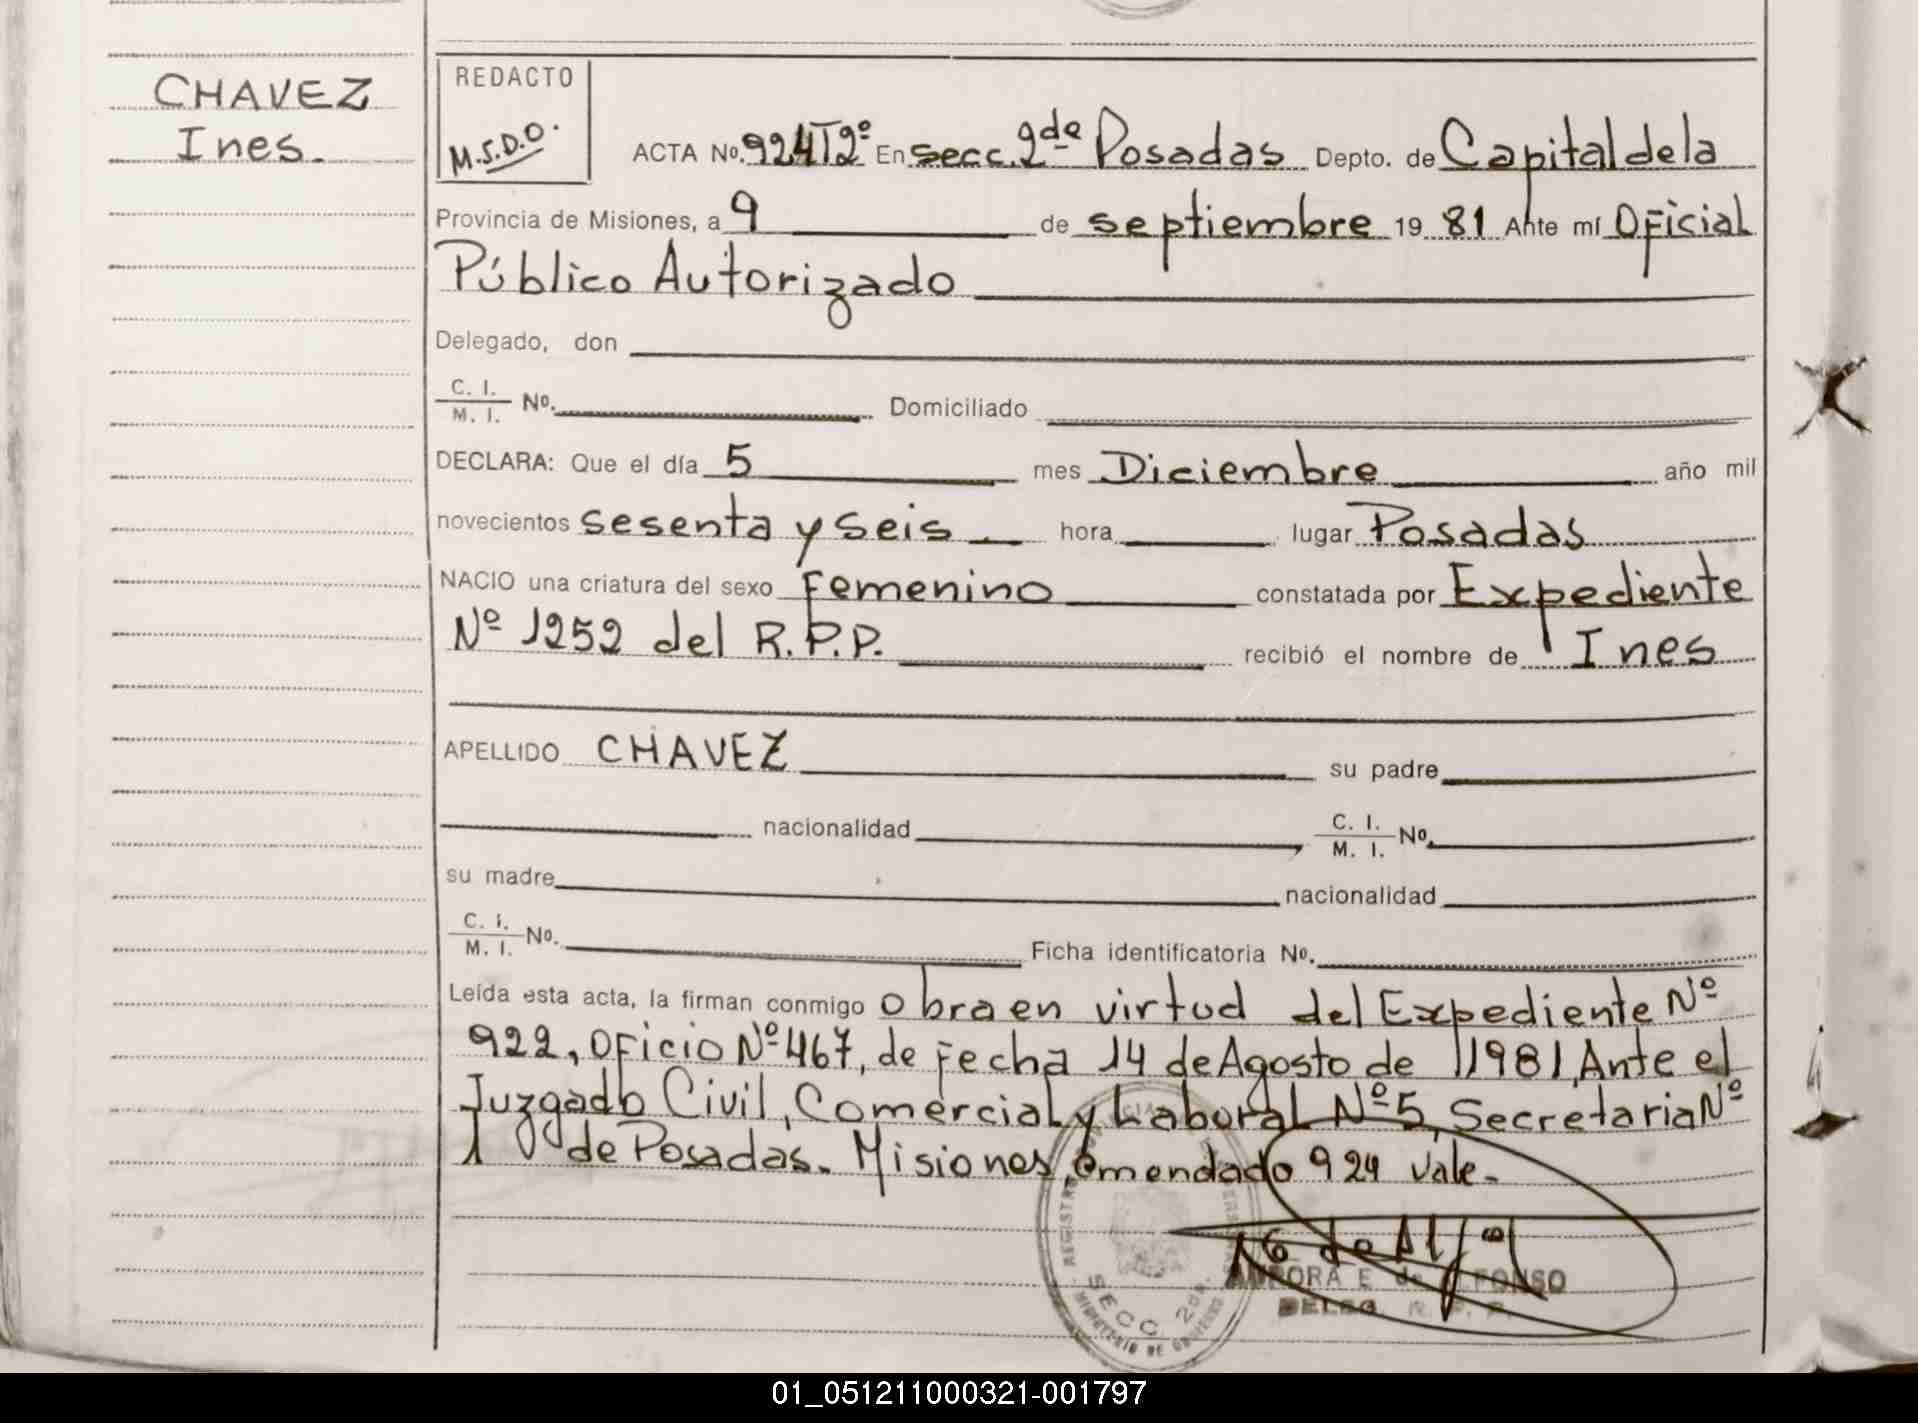 CHAVEZ
Ines.
REDACTO
M.S.D.O.
ACTA No. 924T2º En secc. 2da Posadas Depto. de Capital de la
Provincia de Misiones, a 9 de septiembre 19 81 Ante mí Oficial
Público Autorizado
Delegado, don
C. I. / M. I. No. Domiciliado
DECLARA: Que el día 5 mes Diciembre año mil
novecientos sesenta y seis hora lugar Posadas
NACIO una criatura del sexo Femenino constatada por Expediente
Nº 1252 del R.P.P. recibió el nombre de Ines
APELLIDO CHAVEZ su padre
nacionalidad C. I. / M. I. No.
su madre nacionalidad
C. I. / M. I. No. Ficha identificatoria No.
Leída esta acta, la firman conmigo Obra en virtud del Expediente Nº
922, Oficio Nº 467, de Fecha 14 de Agosto de 1981, Ante el
Juzgado Civil, Comercial y Laboral Nº 5, Secretaria Nº
1 de Posadas. Misiones, emendado 924 vale.
AURORA E. de ALFONSO
DELEG. R. P. P.
SECC. 2da.
MINISTERIO DE GOBIERNO
01_051211000321-001797